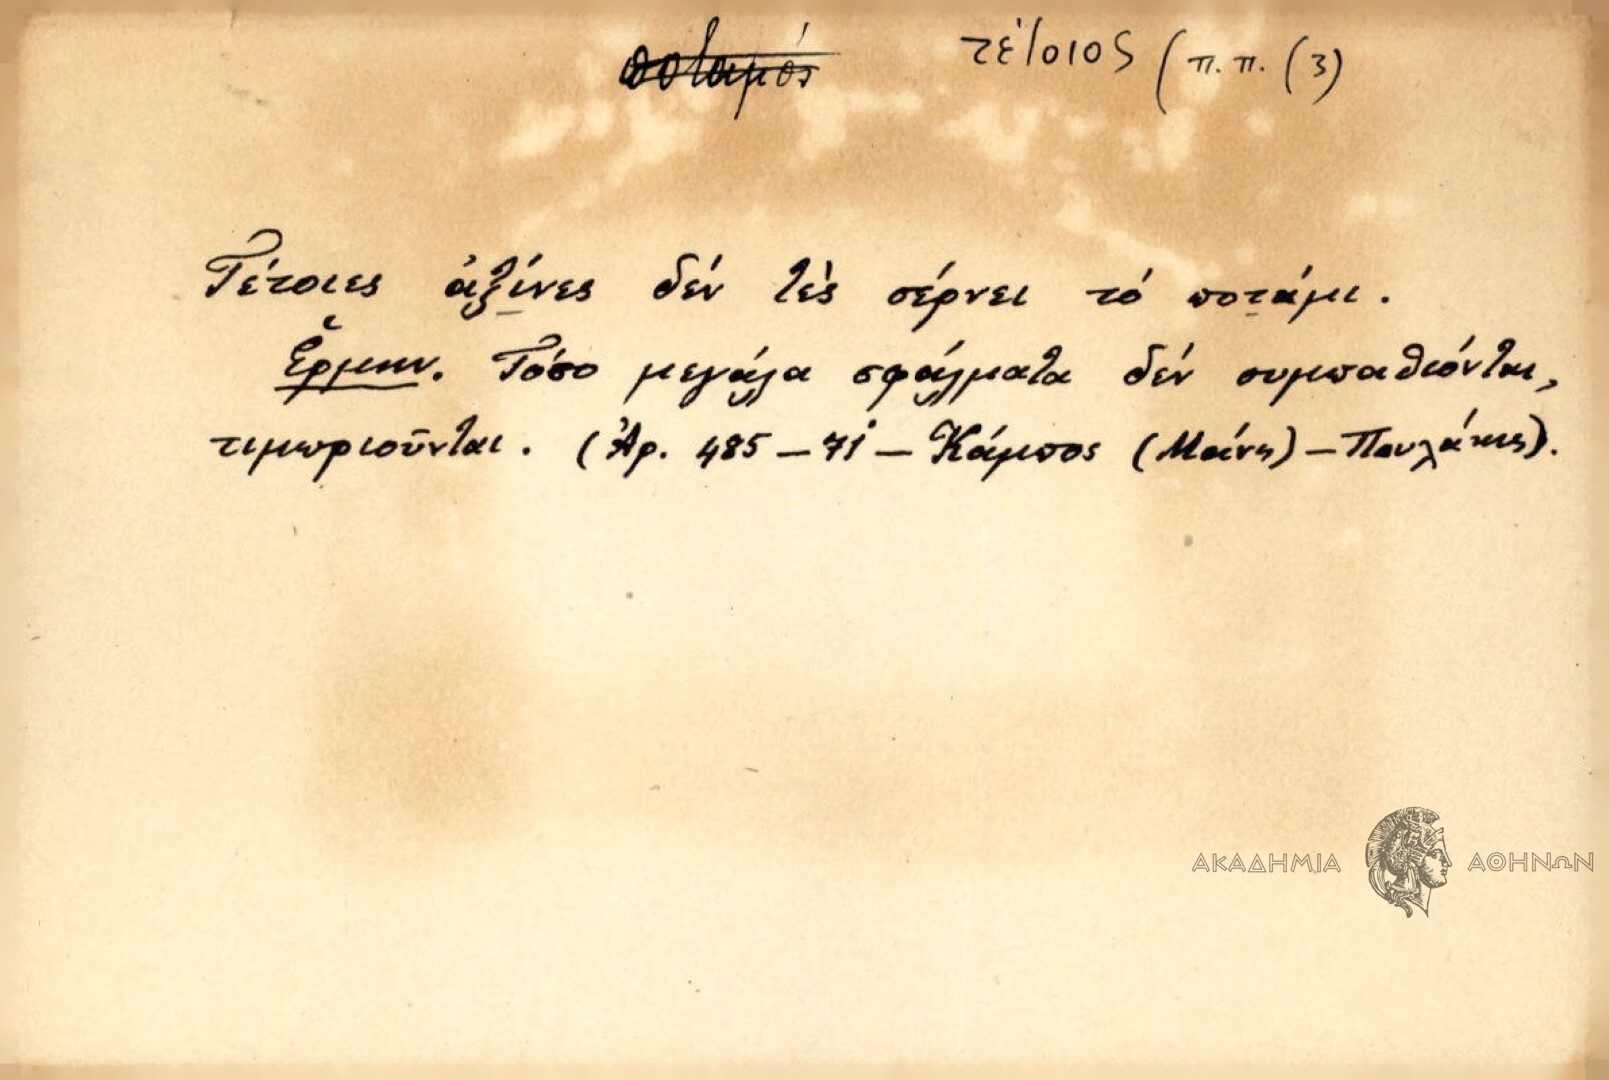 ποταμός τέτοιος (π.π. (3)
Τέτοιες ἀξίνες δέν τές σέρνει τό ποτάμι.
Ἑρμην. Τόσο μεγάλα σφάλματα δέν συμπαθιόνται,
τιμωριοῦνται. (Ἀρ. 485 – 71 – Κάμπος (Μάνης) – Πουλάκις).
ΑΚΑΔΗΜΙΑ ΑΘΗΝΩΝ